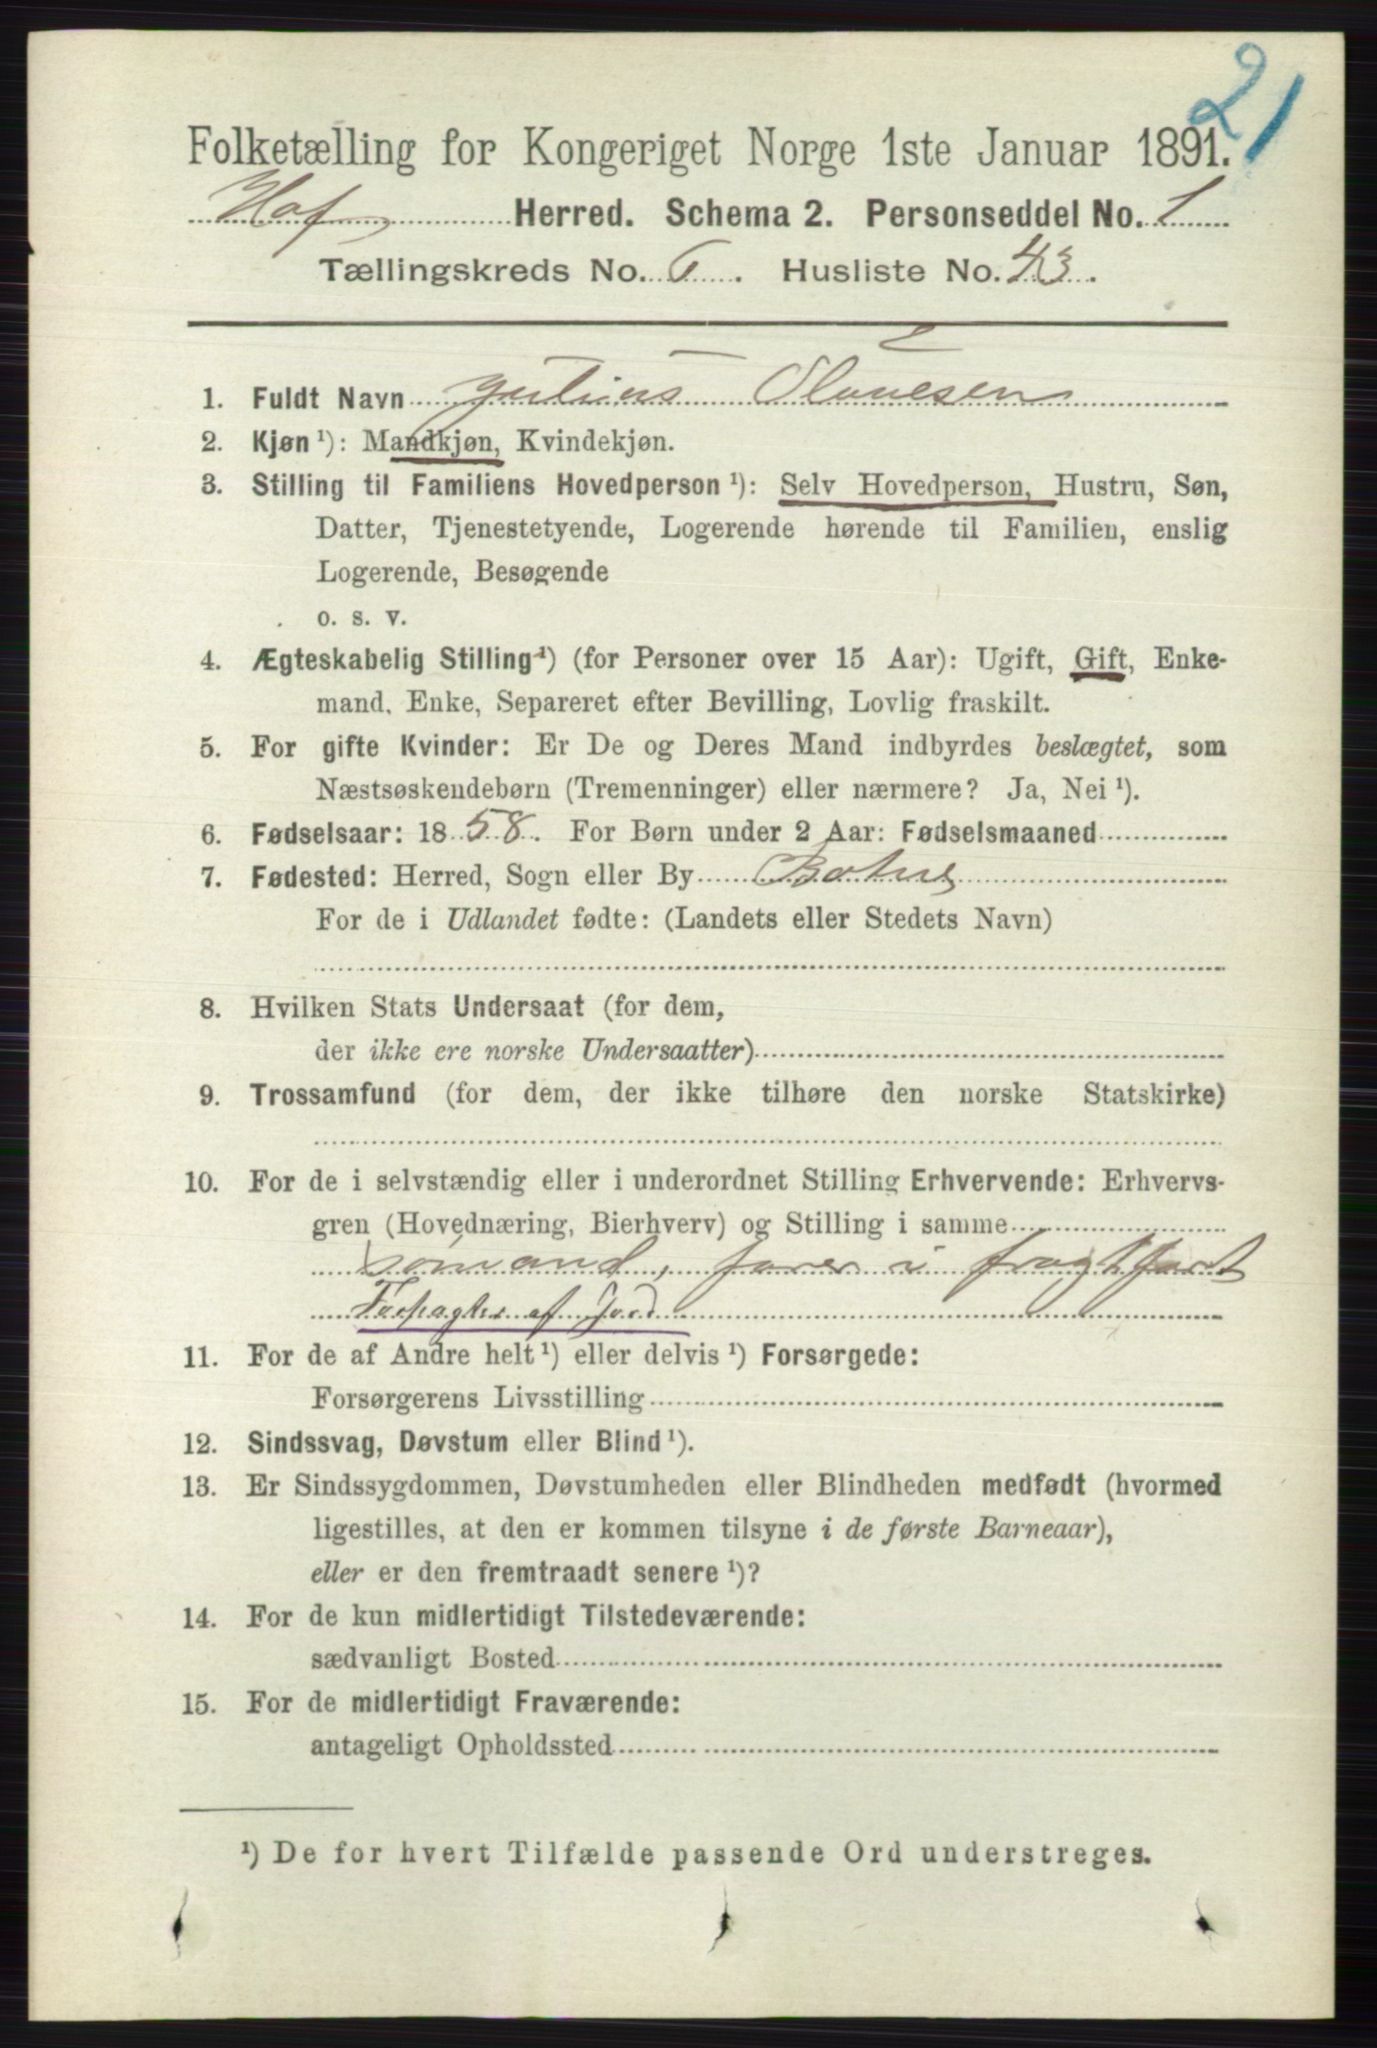 21
Folketælling for Kongeriget Norge 1ste Januar 1891.
Hof Herred. Schema 2. Personseddel No. 1
Tællingskreds No. 6. Husliste No. 43.
1. Fuldt Navn Julius Olausen
2. Kjøn ¹): Mandkjøn, Kvindekjøn.
3. Stilling til Familiens Hovedperson ¹): Selv Hovedperson, Hustru, Søn,
Datter, Tjenestetyende, Logerende hørende til Familien, enslig
Logerende, Besøgende
o. s. v.
4. Ægteskabelig Stilling ¹) (for Personer over 15 Aar): Ugift, Gift, Enke-
mand, Enke, Separeret efter Bevilling, Lovlig fraskilt.
5. For gifte Kvinder: Er De og Deres Mand indbyrdes beslægtet, som
Næstsøskendebørn (Tremenninger) eller nærmere? Ja, Nei ¹).
6. Fødselsaar: 1858. For Børn under 2 Aar: Fødselsmaaned
7. Fødested: Herred, Sogn eller By Botne
For de i Udlandet fødte: (Landets eller Stedets Navn)
8. Hvilken Stats Undersaat (for dem,
der ikke ere norske Undersaatter)
9. Trossamfund (for dem, der ikke tilhøre den norske Statskirke)
10. For de i selvstændig eller i underordnet Stilling Erhvervende: Erhvervs-
gren (Hovednæring, Bierhverv) og Stilling i samme
sömand, farer i fragtfart
Forpagter af Jord
11. For de af Andre helt ¹) eller delvis ¹) Forsørgede:
Forsørgerens Livsstilling
12. Sindssvag, Døvstum eller Blind ¹).
13. Er Sindssygdommen, Døvstumheden eller Blindheden medfødt (hvormed
ligestilles, at den er kommen tilsyne i de første Barneaar),
eller er den fremtraadt senere ¹)?
14. For de kun midlertidigt Tilstedeværende:
sædvanligt Bosted
15. For de midlertidigt Fraværende:
antageligt Opholdssted
¹) De for hvert Tilfælde passende Ord understreges.